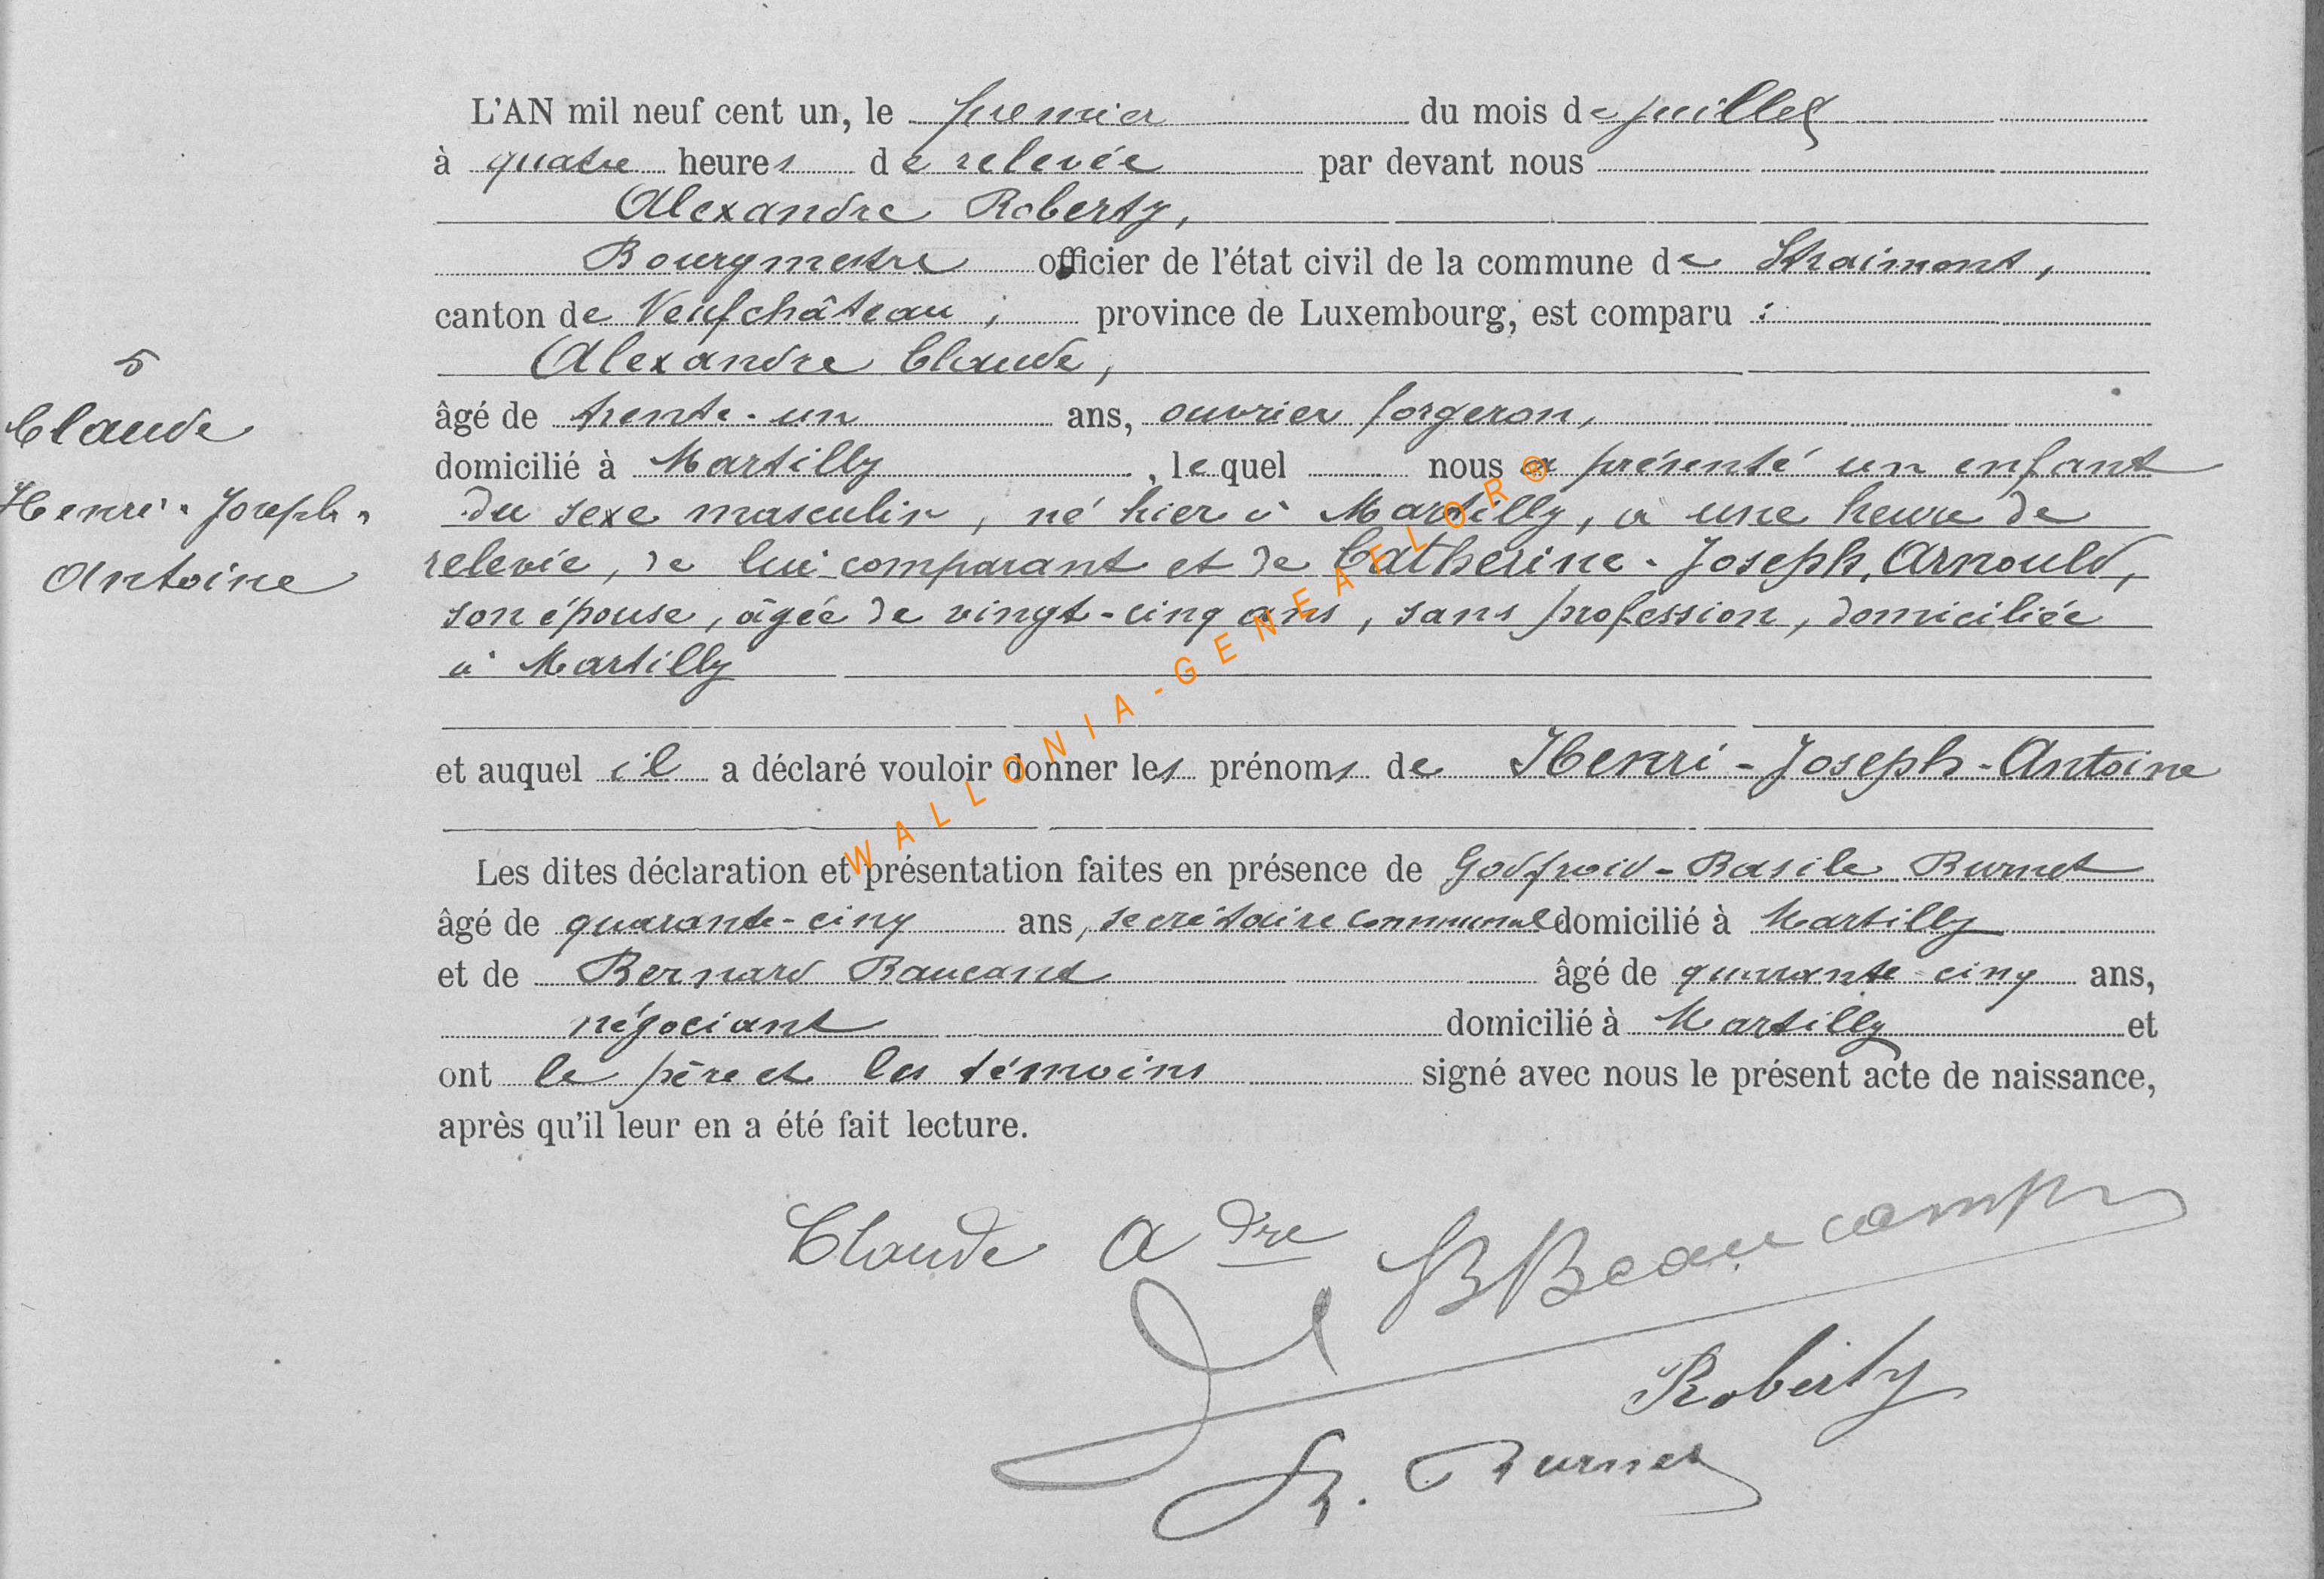 L'AN mil neuf cent un, le premier du mois de juillet
à quatre heures de relevée par devant nous
Alexandre Roberty,
Bourgmestre officier de l'état civil de la commune de Straimont,
canton de Neufchâteau, province de Luxembourg, est comparu :
Alexandre Claude,
âgé de trente-un ans, ouvrier forgeron,
domicilié à Martilly, lequel nous a présenté un enfant
du sexe masculin, né hier à Martilly, à une heure de
relevée, de lui comparant et de Catherine-Joseph Arnould,
son épouse, âgée de vingt-cinq ans, sans profession, domiciliée
à Martilly
et auquel il a déclaré vouloir donner les prénoms de Henri-Joseph-Antoine
Les dites déclaration et présentation faites en présence de Godfroid-Basile Burnet
âgé de quarante-cinq ans, secrétaire communal domicilié à Martilly
et de Bernard âgé de quarante-cinq ans,
négociant domicilié à Martilly et
ont le père et les témoins signé avec nous le présent acte de naissance,
après qu'il leur en a été fait lecture.
5
Claude
Henri-Joseph-
Antoine
Claude Adre
B Beaucamp
Roberty
B. Burnet
WALLONIA-GENEAFLOR®